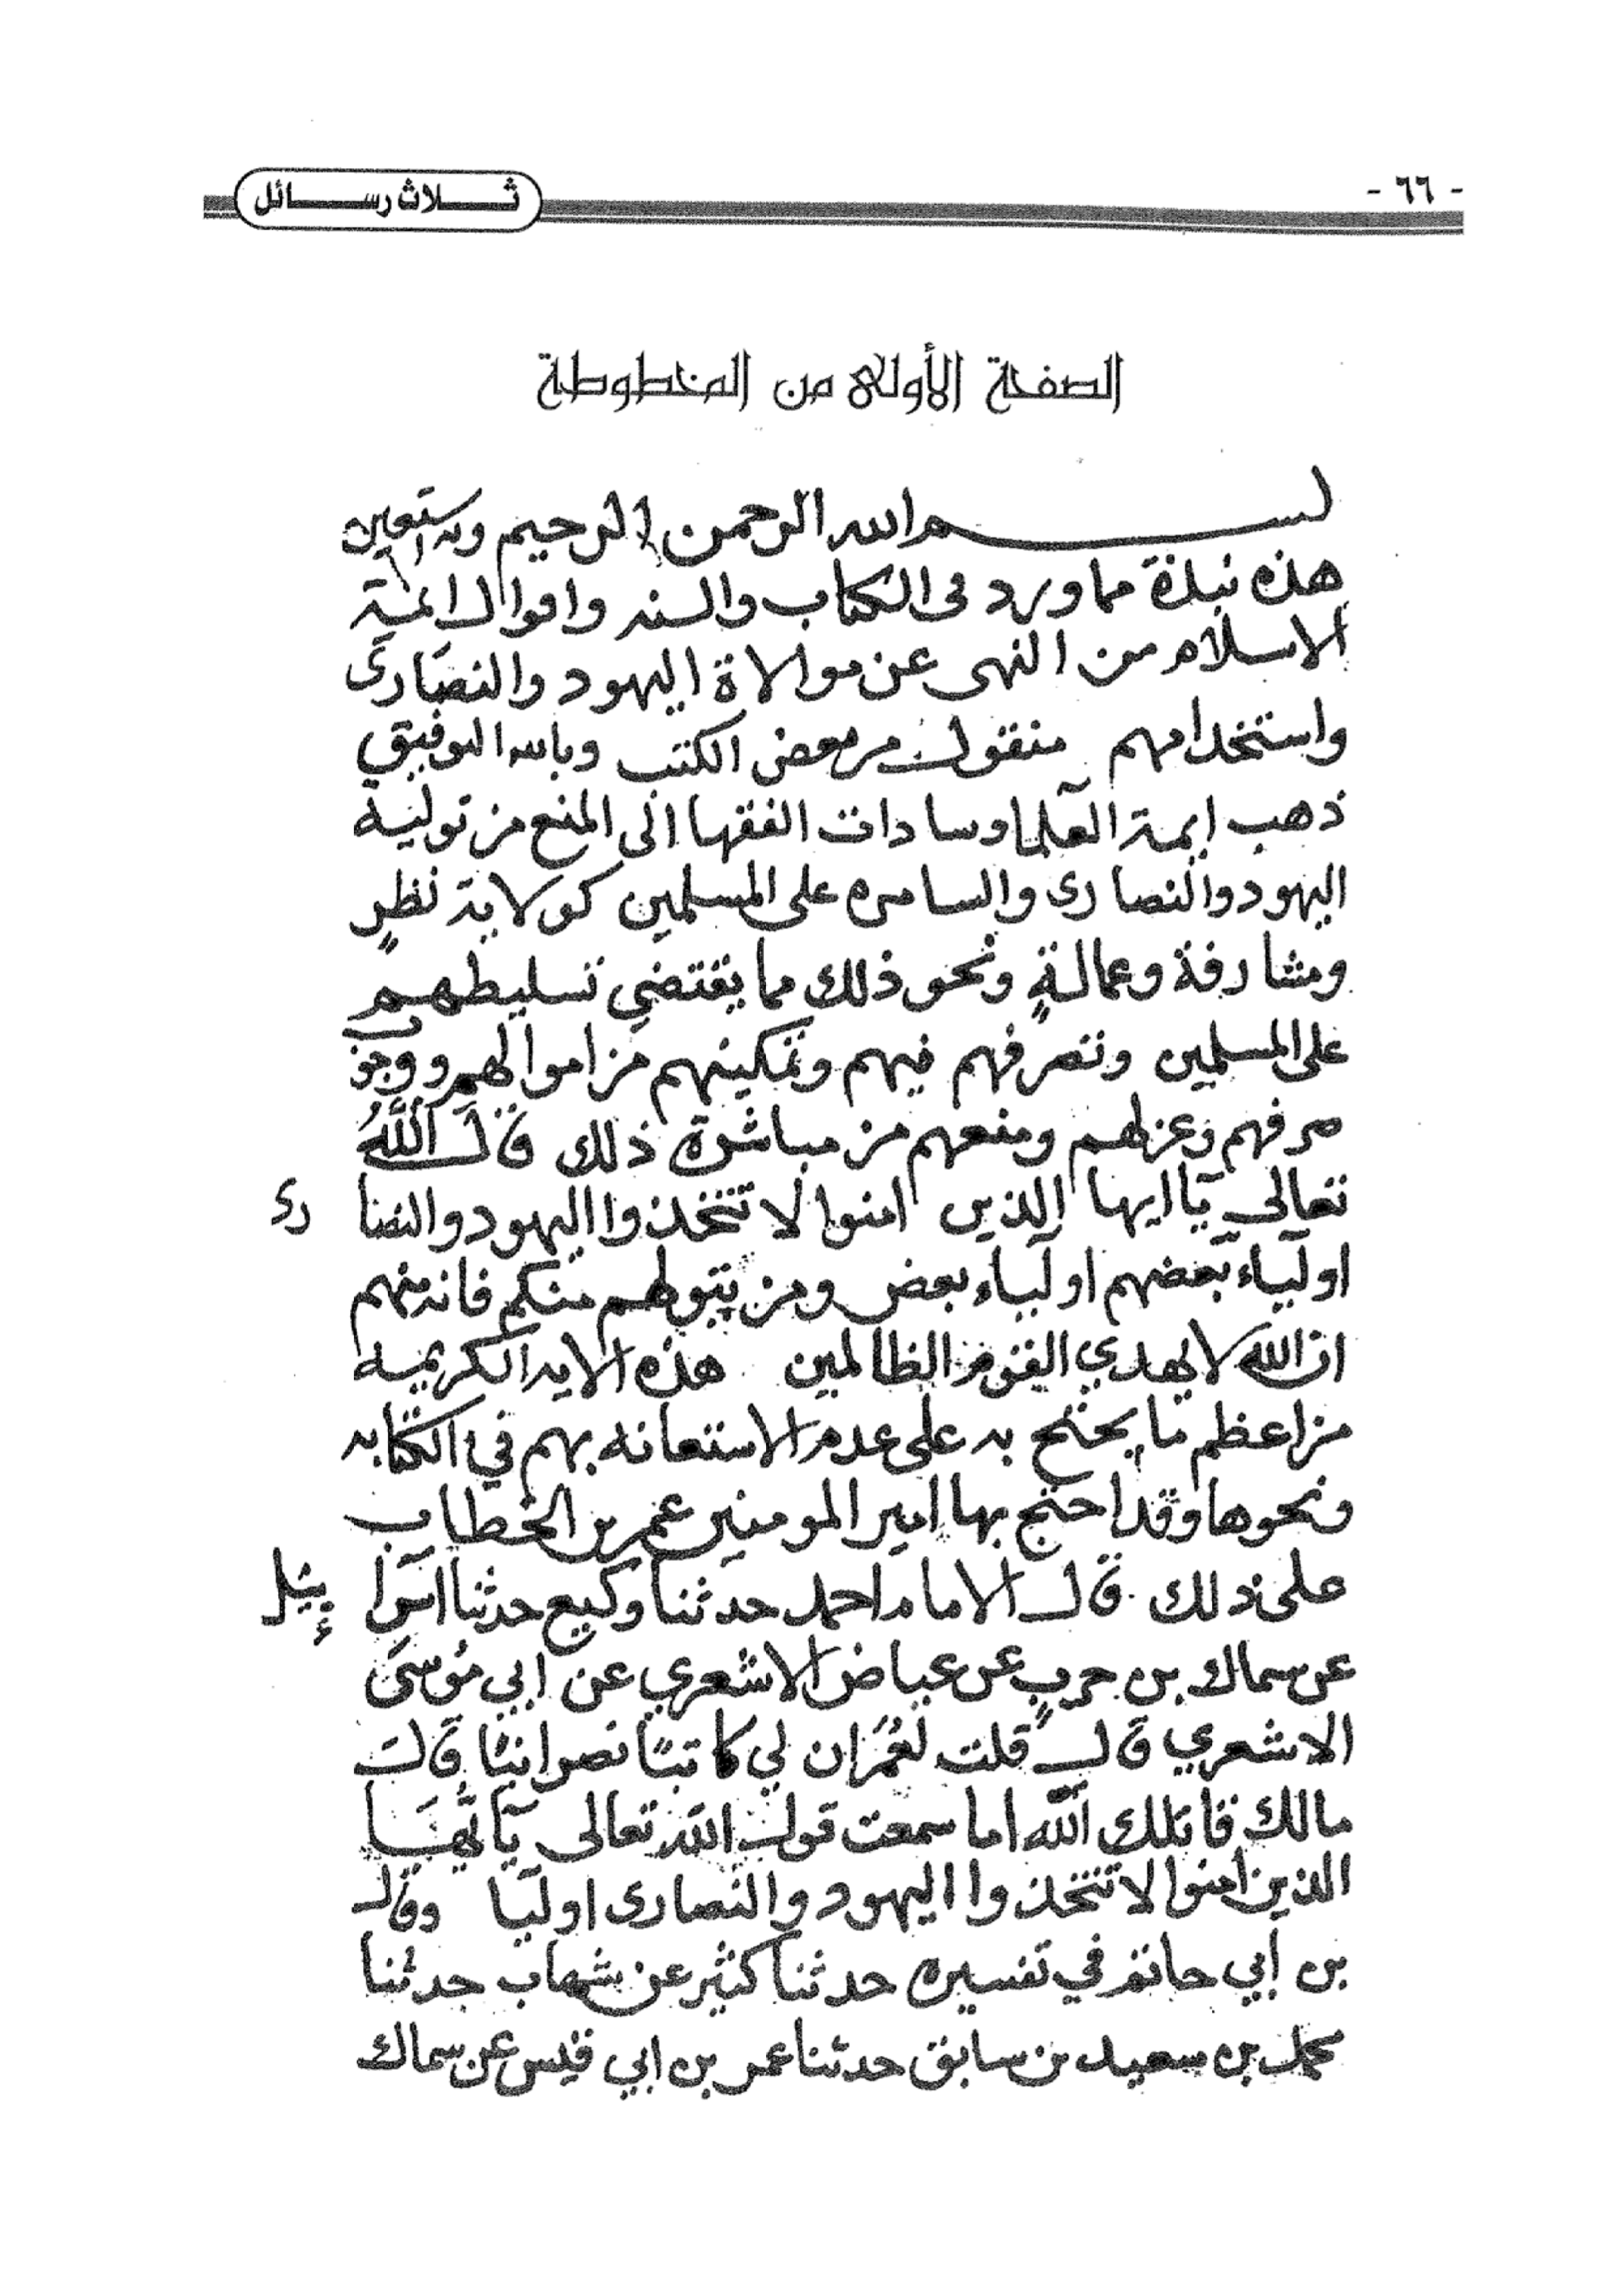 - ٦٦ -
ثـــلاث رســـائل
الصفحة الأولى من المخطوطة
بسم الله الرحمن الرحيم وبه استعين
هذه نبذة مما ورد فى الكتاب والسنه واقوال ايمة
الاسلام من النهى عن موالاة اليهود والنصارى
واستخدامهم منقول من بعض الكتب وبالله التوفيق
ذهب ايمة العلما وسادات الفقها الى المنع من تولية
اليهود والنصارى والسامره على المسلمين كولاية نظرٍ
ومشارفة وعمالةٍ ونحو ذلك مما يقتضي تسليطهم
على المسلمين وتصرفهم فيهم وتمكينهم من اموالهم ووجوب
صرفهم وعزلهم ومنعهم من مباشرة ذلك قال اللَّهُ
تعالى يآايها الذين امنوا لا تتخذوا اليهود والنصارى
اوليآء بعضهم اوليآء بعض ومن يتولهم منكم فانه منهم
ان الله لا يهدي القوم الظالمين هذه الايه الكريمه
من اعظم ما يحتج به على عدم الاستعانه بهم في الكتابه
ونحوها وقد احتج بها امير المومنين عمر بن الخطاب
على ذلك قال الامام احمد حدثنا وكيع حدثنا اسرآئيل
عن سماك بن حربٍ عن عياض الاشعري عن ابي مُوسىَ
الاشعري قال قلت لعُمَران لي كاتبًا نصرانيًا قال
مالك قاتلك الله اما سمعت قول الله تعالى يآ ايُّهَا
الذين امنوا لا تتخذوا اليهود والنصارى اوليا وقال
بن أبي حاتم في تفسيره حدثنا كثير عن شهاب حدثنا
محمد بن سعيد بن سابق حدثنا عمر بن ابي قيس عن سماك